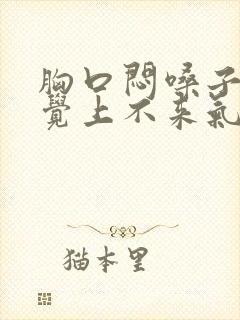 胸口悶嗓子
覺上不来氣
猫本里